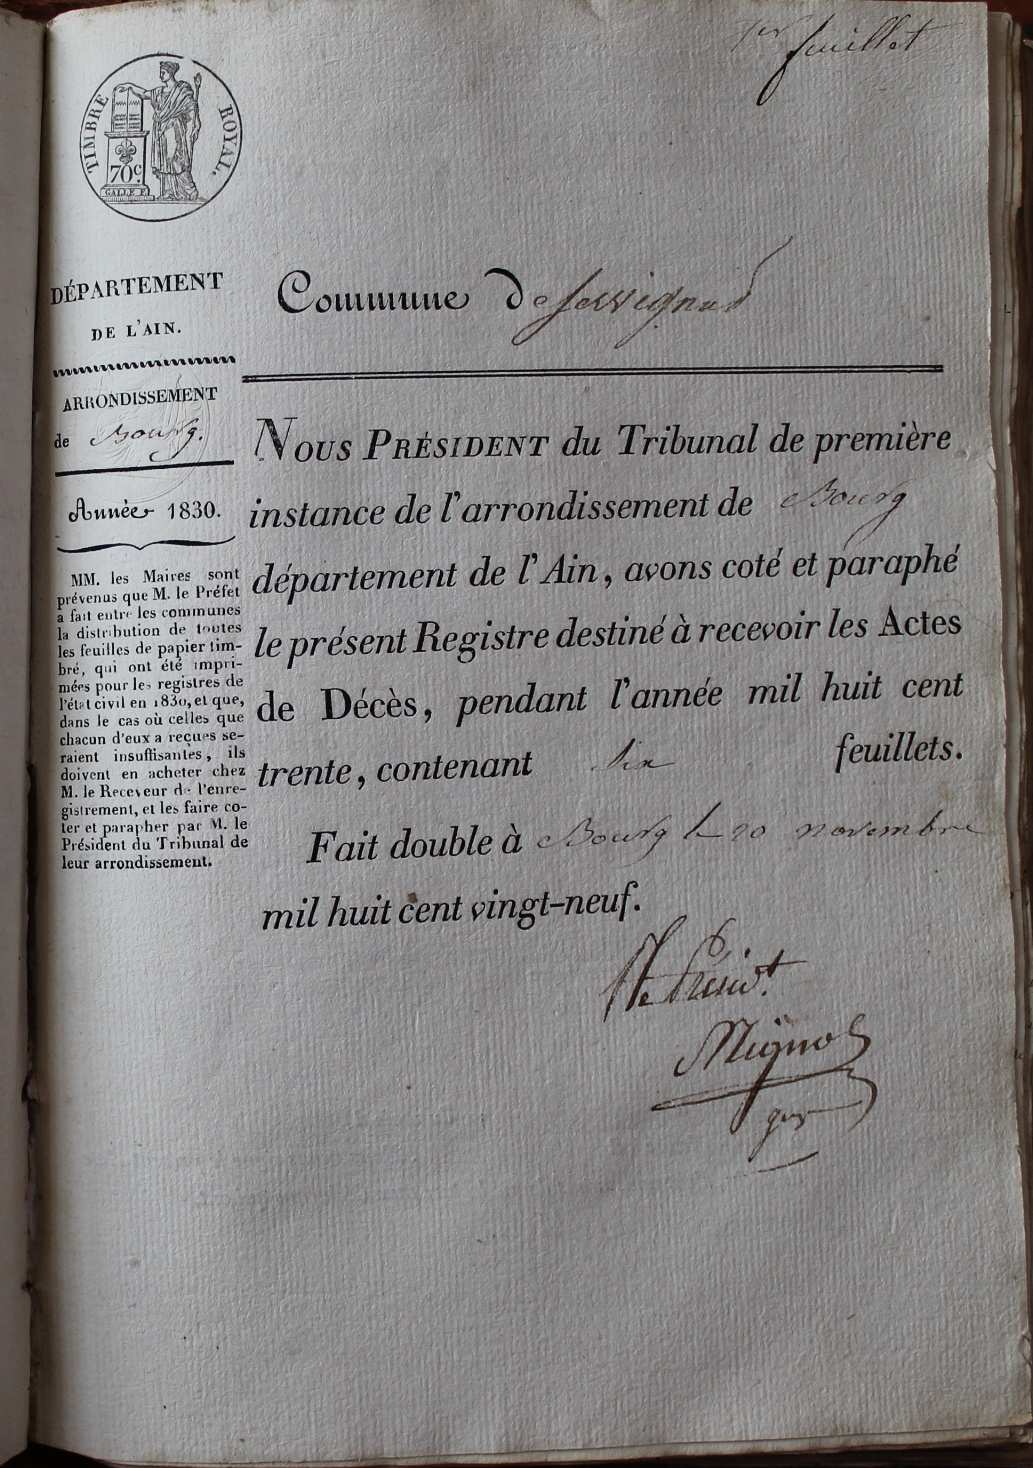 1er feuillet
TIMBRE ROYAL.
70c.
GALLE F.
DÉPARTEMENT
DE L'AIN.
ARRONDISSEMENT
de Bourg.
Année 1830.
MM. les Maires sont
prévenus que M. le Préfet
a fait entre les communes
la distribution de toutes
les feuilles de papier tim-
bré, qui ont été impri-
mées pour les registres de
l'état civil en 1830, et que,
dans le cas où celles que
chacun d'eux a reçues se-
raient insuffisantes, ils
doivent en acheter chez
M. le Receveur de l'enre-
gistrement, et les faire co-
ter et parapher par M. le
Président du Tribunal de
leur arrondissement.
Commune de Servignad
NOUS PRÉSIDENT du Tribunal de première
instance de l'arrondissement de Bourg
département de l'Ain, avons coté et paraphé
le présent Registre destiné à recevoir les Actes
de Décès, pendant l'année mil huit cent
trente, contenant Six feuillets.
Fait double à Bourg le 20 novembre
mil huit cent vingt-neuf.
le Présidt.